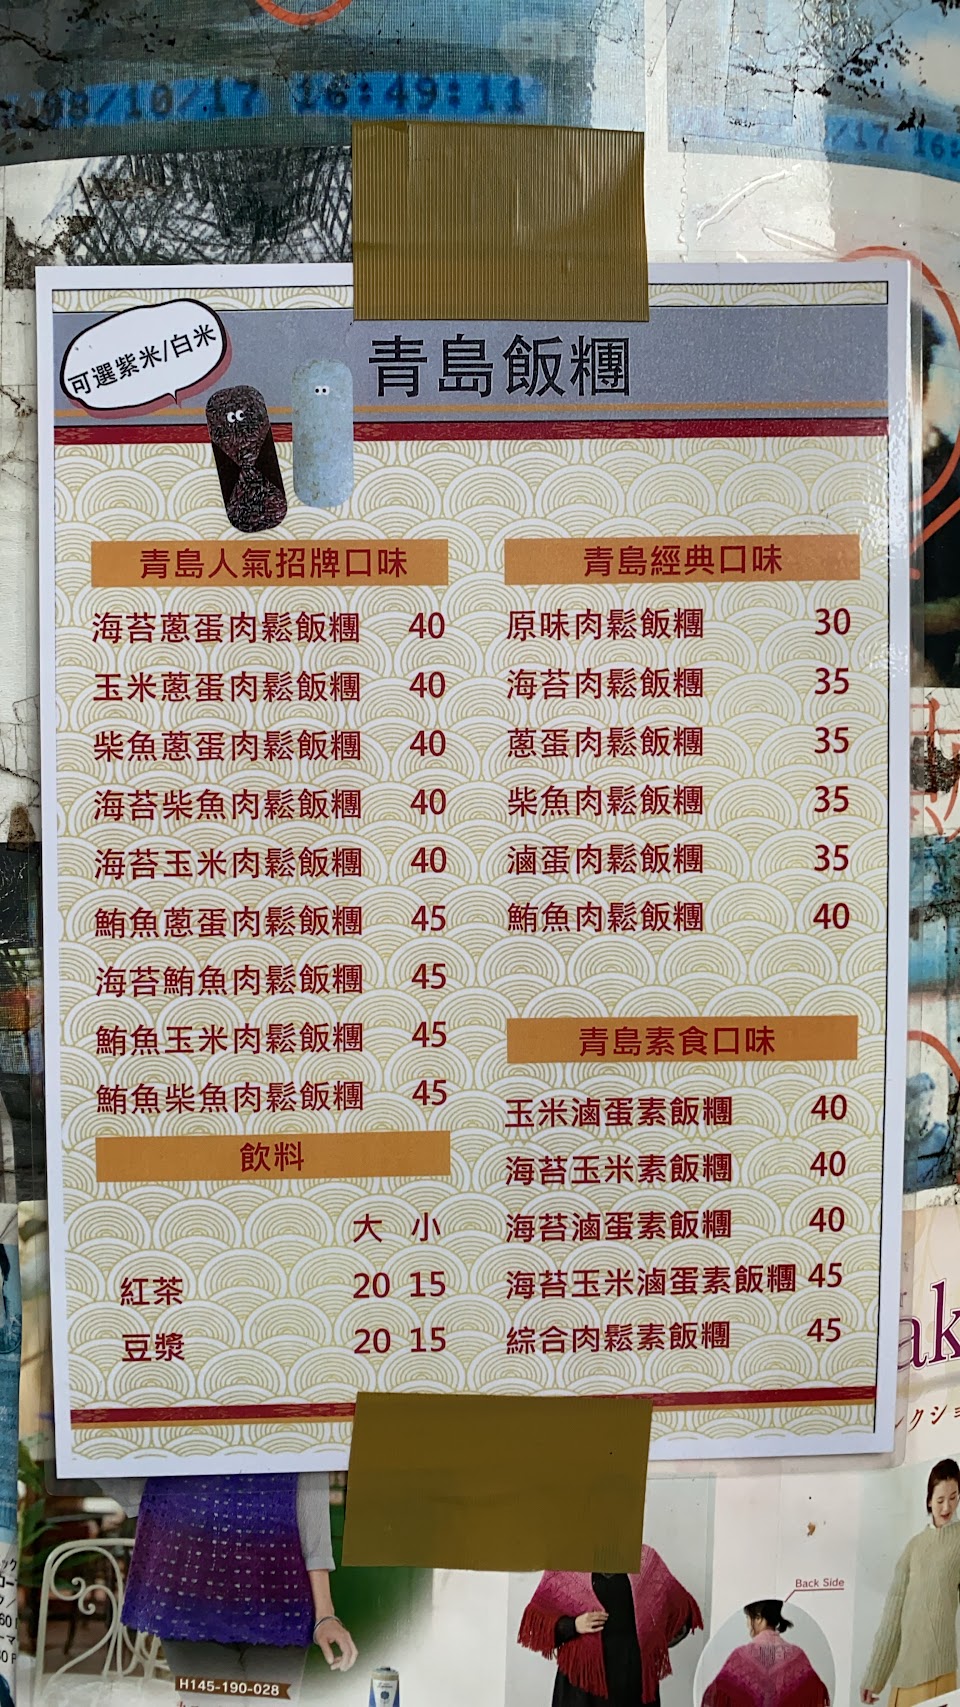 98/10/17 16:49:11
/17 16:
可選紫米/白米
青島飯糰
青島人氣招牌口味
海苔蔥蛋肉鬆飯糰 40
玉米蔥蛋肉鬆飯糰 40
柴魚蔥蛋肉鬆飯糰 40
海苔柴魚肉鬆飯糰 40
海苔玉米肉鬆飯糰 40
鮪魚蔥蛋肉鬆飯糰 45
海苔鮪魚肉鬆飯糰 45
鮪魚玉米肉鬆飯糰 45
鮪魚柴魚肉鬆飯糰 45
飲料
大 小
紅茶 20 15
豆漿 20 15
青島經典口味
原味肉鬆飯糰 30
海苔肉鬆飯糰 35
蔥蛋肉鬆飯糰 35
柴魚肉鬆飯糰 35
滷蛋肉鬆飯糰 35
鮪魚肉鬆飯糰 40
青島素食口味
玉米滷蛋素飯糰 40
海苔玉米素飯糰 40
海苔滷蛋素飯糰 40
海苔玉米滷蛋素飯糰 45
綜合肉鬆素飯糰 45
ak
クショ
Back Side
H145-190-028